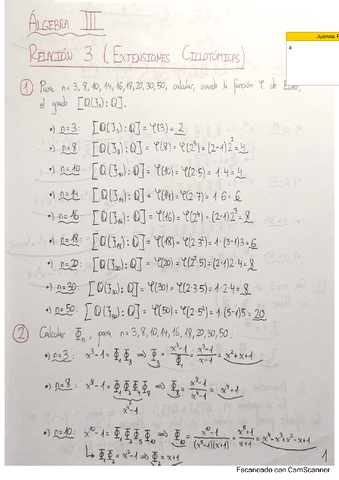 ÁLGEBRA III
RELACIÓN 3 (EXTENSIONES CICLOTÓMICAS)
① Para n=3, 8, 10, 14, 16, 18, 20, 30, 50, calcular, usando la función φ de Euler,
el grado [Q(ξₙ):Q].
•) n=3: [Q(ξ₃):Q] = φ(3) = 2
•) n=8 [Q(ξ₈):Q] = φ(8) = φ(2³) = (2-1)2² = 4
•) n=10 [Q(ξ₁₀):Q] = φ(10) = φ(2·5) = 1·4 = 4
•) n=14 [Q(ξ₁₄):Q] = φ(14) = φ(2·7) = 1·6 = 6
•) n=16 [Q(ξ₁₆):Q] = φ(16) = φ(2⁴) = (2-1)2³ = 8
•) n=18: [Q(ξ₁₈):Q] = φ(18) = φ(2·3²) = 1·(3-1)3 = 6
•) n=20: [Q(ξ₂₀):Q] = φ(20) = φ(2²·5) = (2-1)2·4 = 8
•) n=30: [Q(ξ₃₀):Q] = φ(30) = φ(2·3·5) = 1·2·4 = 8
•) n=50: [Q(ξ₅₀):Q] = φ(50) = φ(2·5²) = 1·(5-1)5 = 20
② Calcular Φₙ, para n=3, 8, 10, 14, 16, 18, 20, 30, 50.
•) n=3: x³-1 = Φ₁Φ₃ ⇒ Φ₃ = x³-1/Φ₁ = x³-1/x-1 = x²+x+1
•) n=8 x⁸-1 = Φ₁Φ₂Φ₄Φ₈ ⇒ Φ₈ = x⁸-1/x⁴-1 = x⁴+1
•) n=10 x¹⁰-1 = Φ₁Φ₂Φ₅Φ₁₀ ⇒ Φ₁₀ = x¹⁰-1/(x⁵-1)(x+1) = x⁵+1/x+1 = x⁴-x³+x²-x+1
↳ Φ₁Φ₂ = x²-1 ⇒ Φ₂ = x+1
1
Escaneado con CamScanner